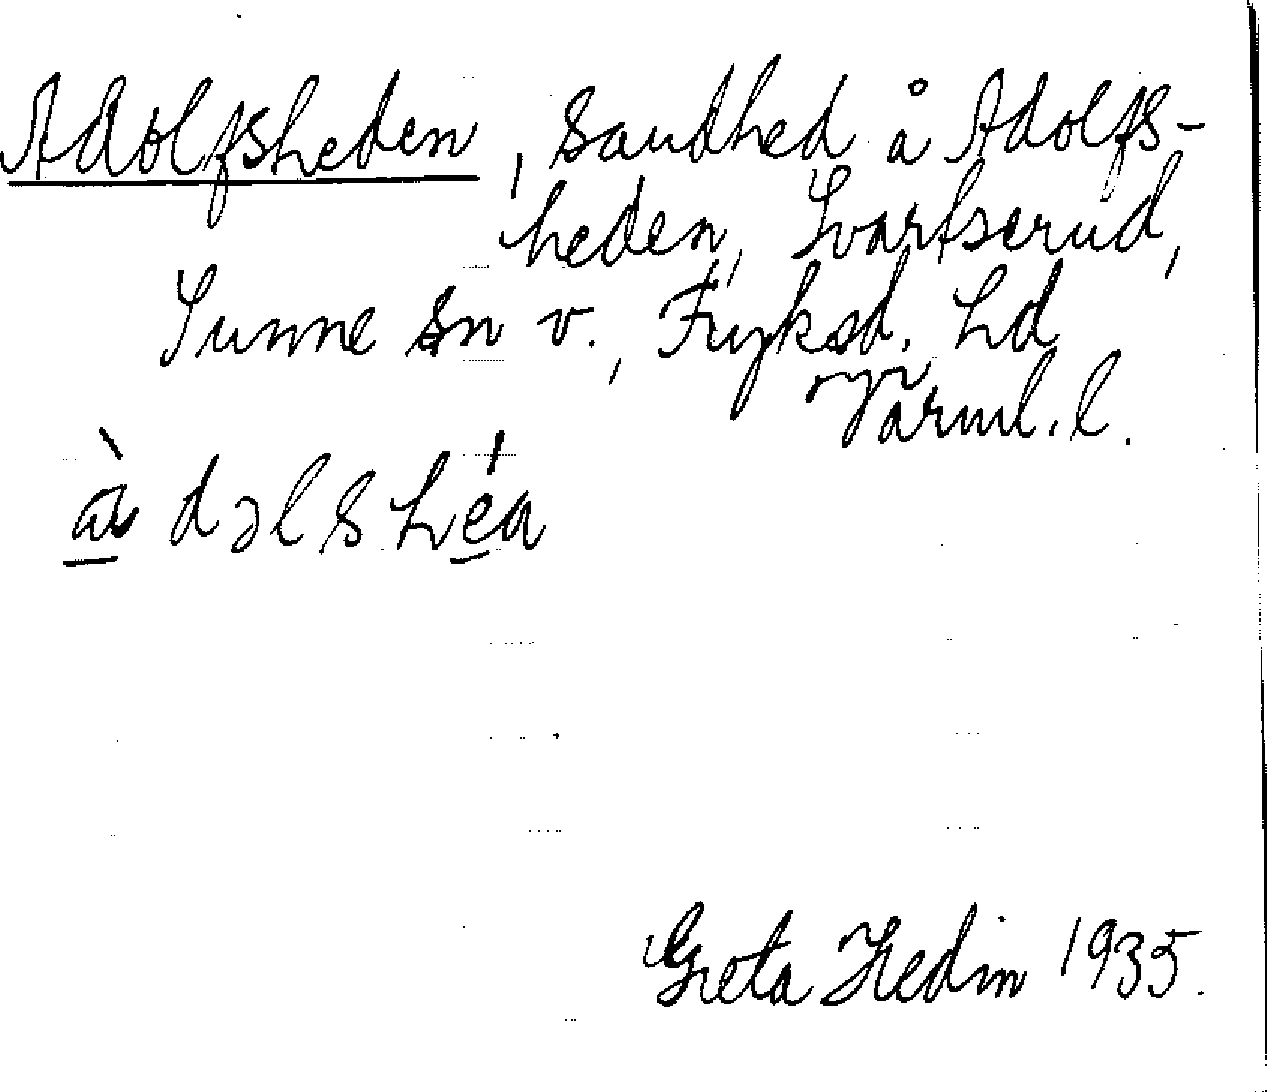 Adolfsheden, Sandhed å Adolfs-
heden, Svartserud,
Sunne sn v., Fryksd. hd
Värml. l.
à dəlshéa
Greta Hedin 1935.